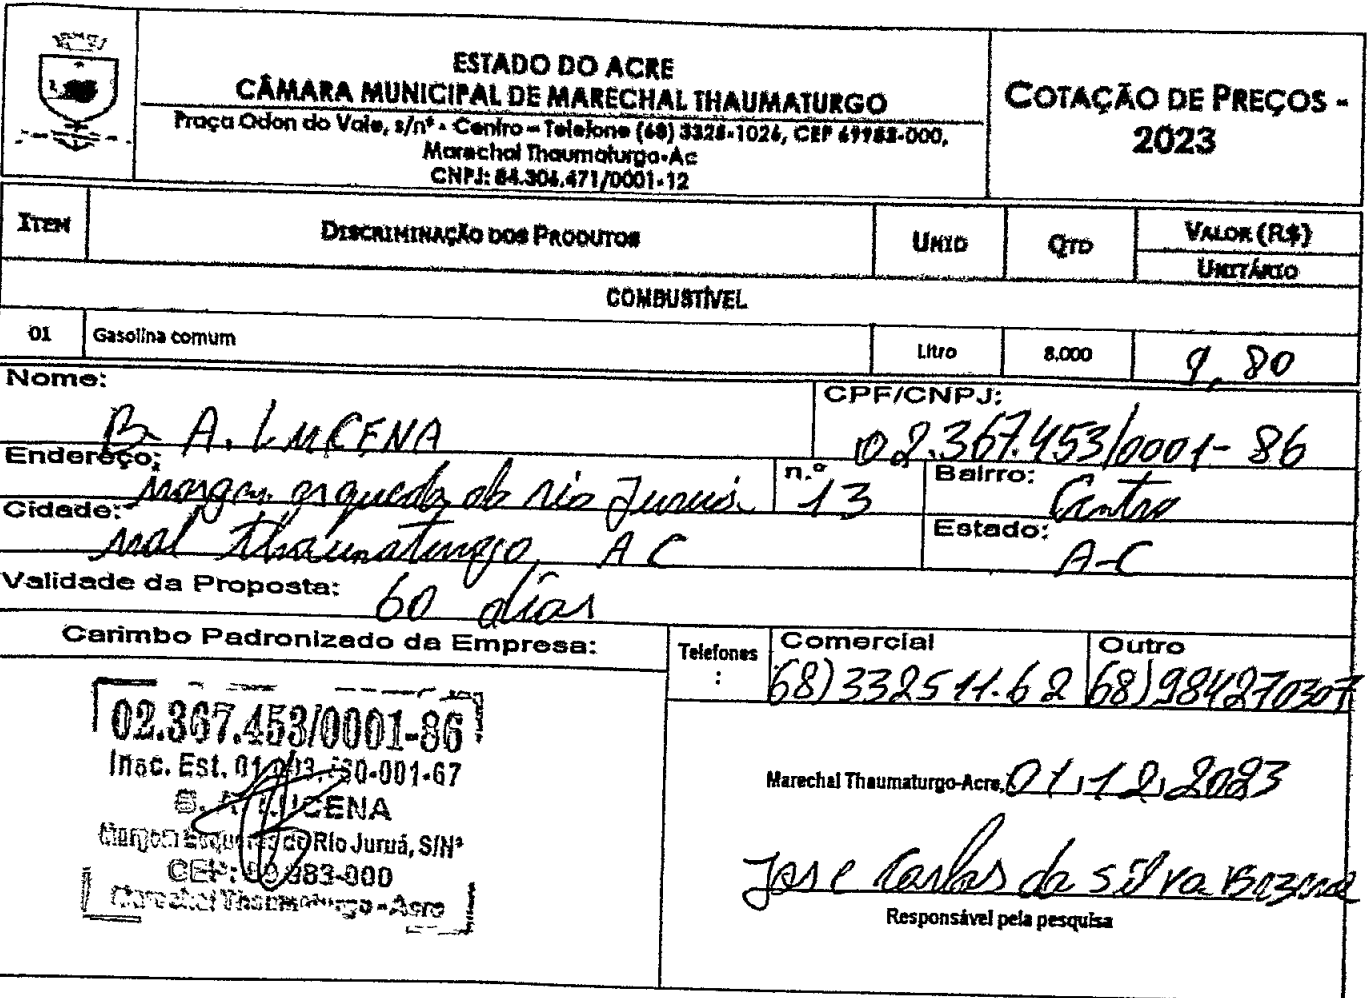 ESTADO DO ACRE
CÂMARA MUNICIPAL DE MARECHAL THAUMATURGO
Praça Odon do Vale, s/nº - Centro – Telefone (68) 3325-1026, CEP 69983-000,
Marechal Thaumaturgo-Ac
CNPJ: 84.306.471/0001-12
COTAÇÃO DE PREÇOS -
2023
ITEM DISCRIMINAÇÃO DOS PRODUTOS UNID QTD VALOR (R$)
UNITÁRIO
COMBUSTÍVEL
01 Gasolina comum Litro 8.000 9,80
Nome: B A. LUCENA
CPF/CNPJ: 02.367.453/0001-86
Endereço: Margem esquerda do rio Juruá n.º 13 Bairro: Centro
Cidade: Mal Thaumaturgo AC Estado: A-C
Validade da Proposta: 60 dias
Carimbo Padronizado da Empresa:
Telefones : Comercial 68)33251162 Outro 68)984270307
02.367.453/0001-86
Insc. Est. 01 -001-67
LUCENA
Margem Esquerda do Rio Juruá, S/Nº
CEP: 69.983-000
Marechal Thaumaturgo - Acre
Marechal Thaumaturgo-Acre, 01,12,2023
Jose Carlos da Silva
Responsável pela pesquisa